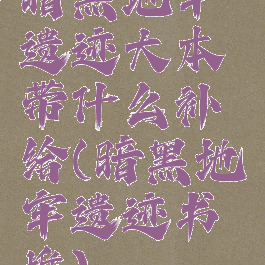 暗黑地牢
遗迹大本
带什么补
给(暗黑地
牢遗迹书
堆)